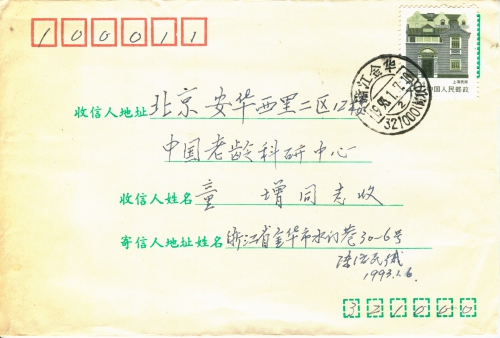 100011
上海民居
中国人民邮政
浙江金华
321000
收信人地址 北京安华西里二区12楼
中国老龄科研中心
收信人姓名 童增同志收
寄信人地址姓名 浙江省金华市水门巷30-6号
1993.1.6.
321000